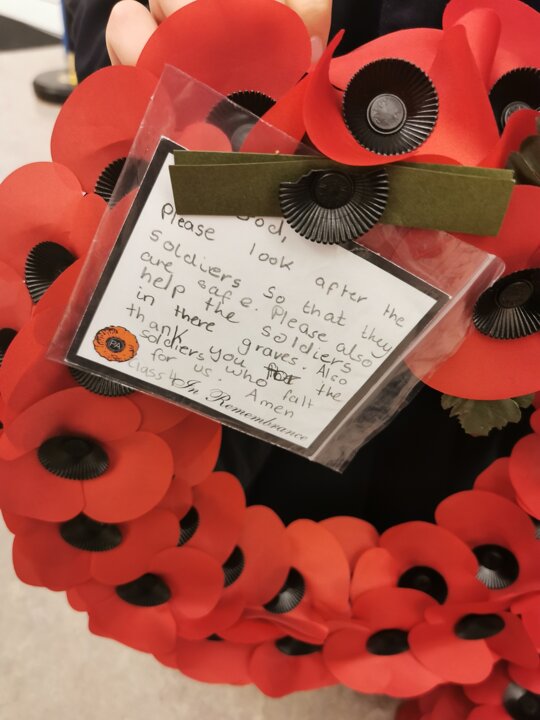 God,
please look after the
soldivers so that they
are safe. Please also
help the soldiers
in there graves. Also
thank you for the
soldiers who falt
for us. Amen
Class 4
In Remembrance
PA